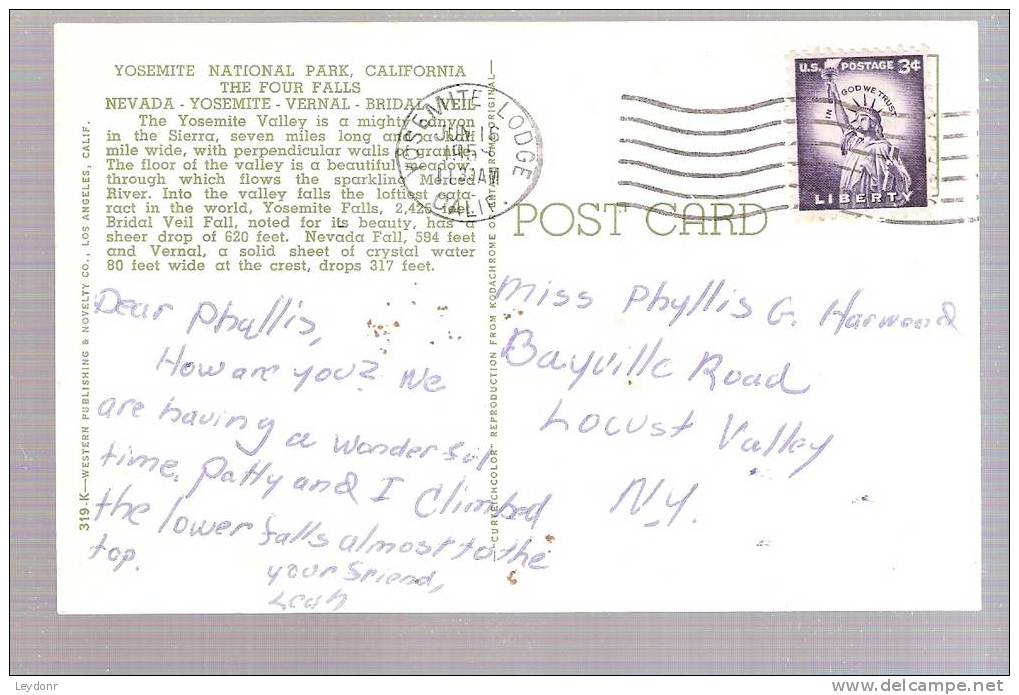 YOSEMITE NATIONAL PARK, CALIFORNIA
THE FOUR FALLS
NEVADA - YOSEMITE - VERNAL - BRIDAL VEIL
The Yosemite Valley is a mighty canyon
in the Sierra, seven miles long and a half
mile wide, with perpendicular walls of granite.
The floor of the valley is a beautiful meadow,
through which flows the sparkling Merced
River. Into the valley falls the loftiest cata-
ract in the world, Yosemite Falls, 2,425 feet.
Bridal Veil Fall, noted for its beauty, has a
sheer drop of 620 feet. Nevada Fall, 594 feet
and Vernal, a solid sheet of crystal water
80 feet wide at the crest, drops 317 feet.
Dear Phyllis,
How are you? We
are having a wonderful
time. Patty and I Climbed
the lower falls almost to the
top.
your friend,
Leah
319-K—WESTERN PUBLISHING & NOVELTY CO., LOS ANGELES, CALIF.
"CURTEICHCOLOR" REPRODUCTION FROM KODACHROME OR ANSCHROME ORIGINAL
YOSEMITE LODGE
JUN 16
AM
CALIF.
U.S. POSTAGE 3¢
IN GOD WE TRUST
LIBERTY
POST CARD
Miss Phyllis G. Harwood
Bayville Road
Locust Valley
N.Y.
Leydonr
delcampe.net